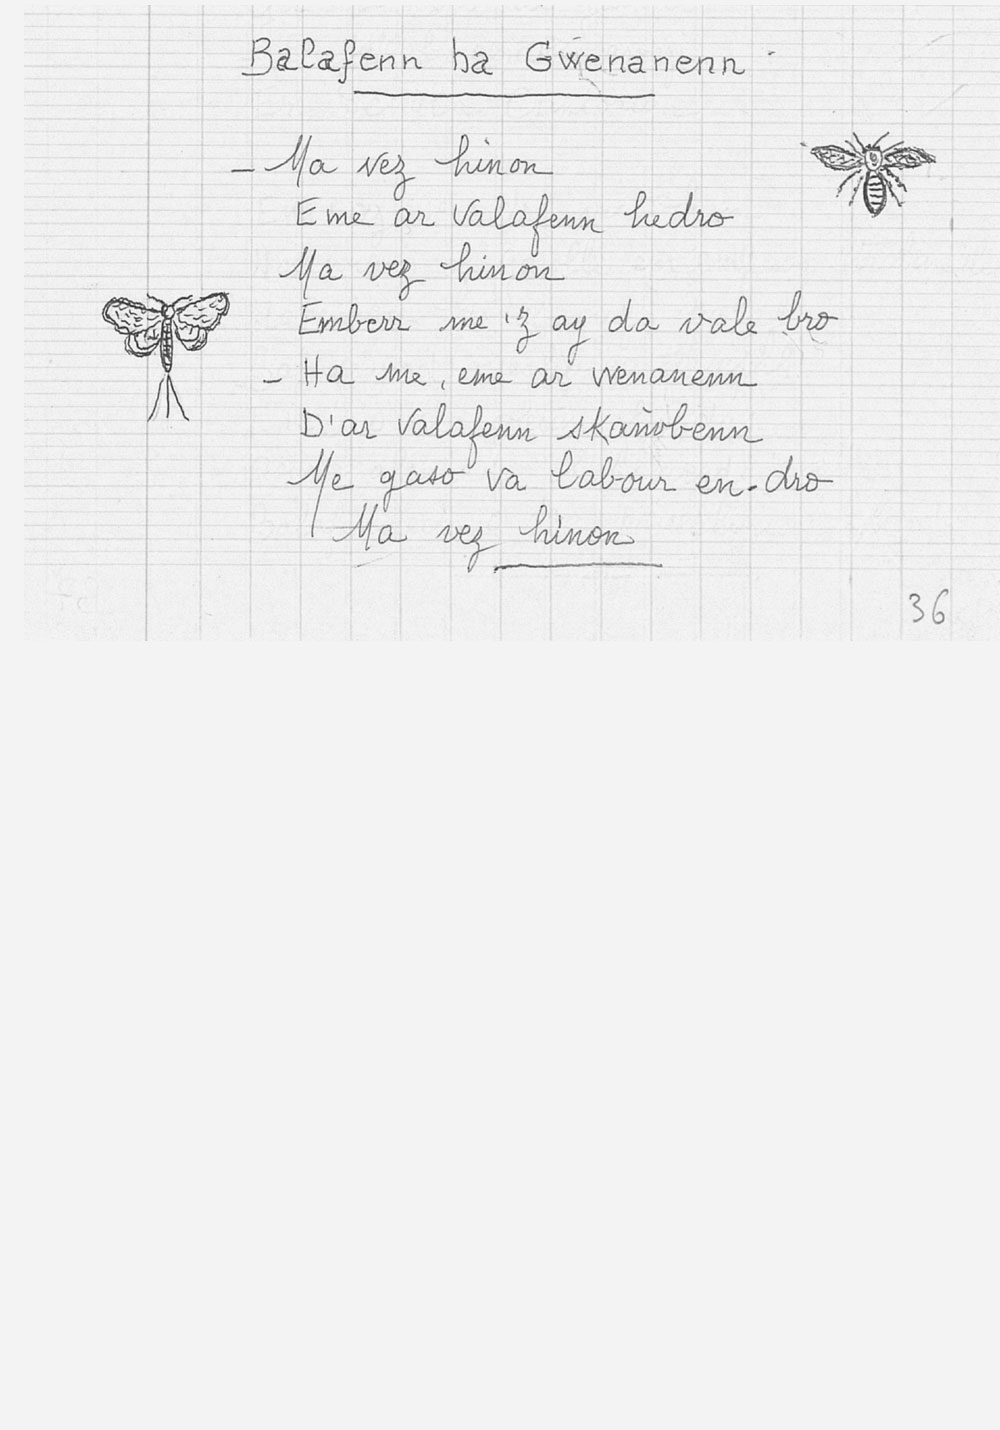 Balafenn ha Gwenanenn
– Ma vez hinon
Eme ar valafenn hedro
Ma vez hinon
Emberr me 'z ay da vale bro
– Ha me, eme ar wenanenn
D'ar valafenn skañvbenn
Me gaso va labour en-dro
Ma vez hinon
36